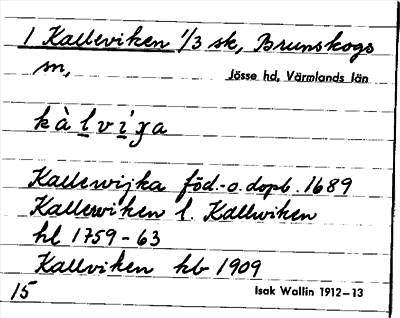 1 Kalleviken 1/3 sk, Brunskogs
sn,
Jösse hd, Värmlands län
kàlviʹɟa
Kallewijka föd.-o.dopb. 1689
Kallewiken l. Kallwiken
hl 1759-63
Kallviken hb 1909
15
Isak Wallin 1912-13